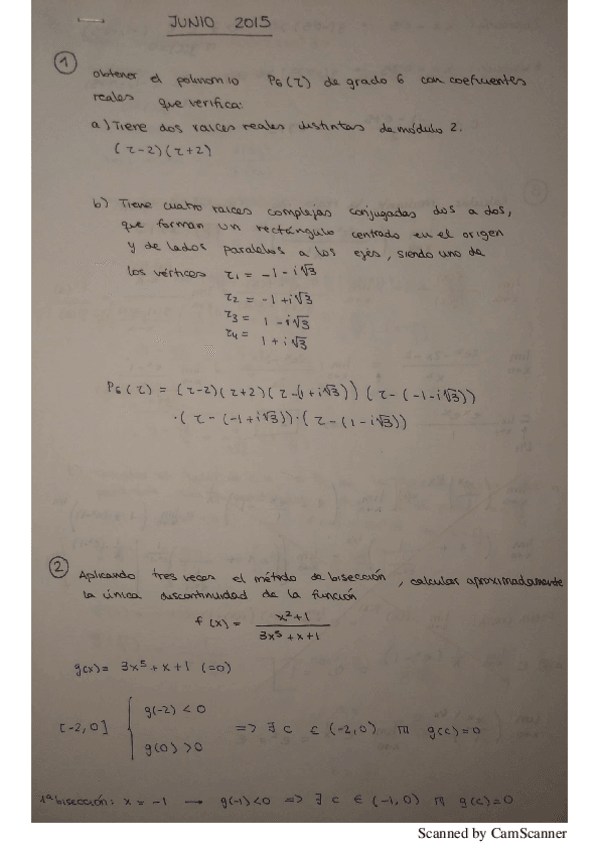 JUNIO 2015
① obtener el polinomio P₆(z) de grado 6 con coeficientes
reales que verifica:
a) Tiene dos raíces reales distintas de módulo 2.
(z-2)(z+2)
b) Tiene cuatro raíces complejas conjugadas dos a dos,
que forman un rectángulo centrado en el origen
y de lados paralelos a los ejes, siendo uno de
los vértices z₁ = -1-i√3
z₂ = -1+i√3
z₃ = 1-i√3
z₄ = 1+i√3
P₆(z) = (z-2)(z+2)(z-(1+i√3))(z-(-1-i√3))
·(z-(-1+i√3))·(z-(1-i√3))
② Aplicando tres veces el método de bisección, calcular aproximadamente
la única discontinuidad de la función
f(x) = x²+1 / 3x⁵+x+1
g(x) = 3x⁵+x+1 (=0)
[-2,0] { g(-2)<0 g(0)>0 => ∃ c ∈ (-2,0) m g(c)=0
1ª bisección: x = -1 → g(-1)<0 => ∃ c ∈ (-1,0) m g(c)=0
Scanned by CamScanner